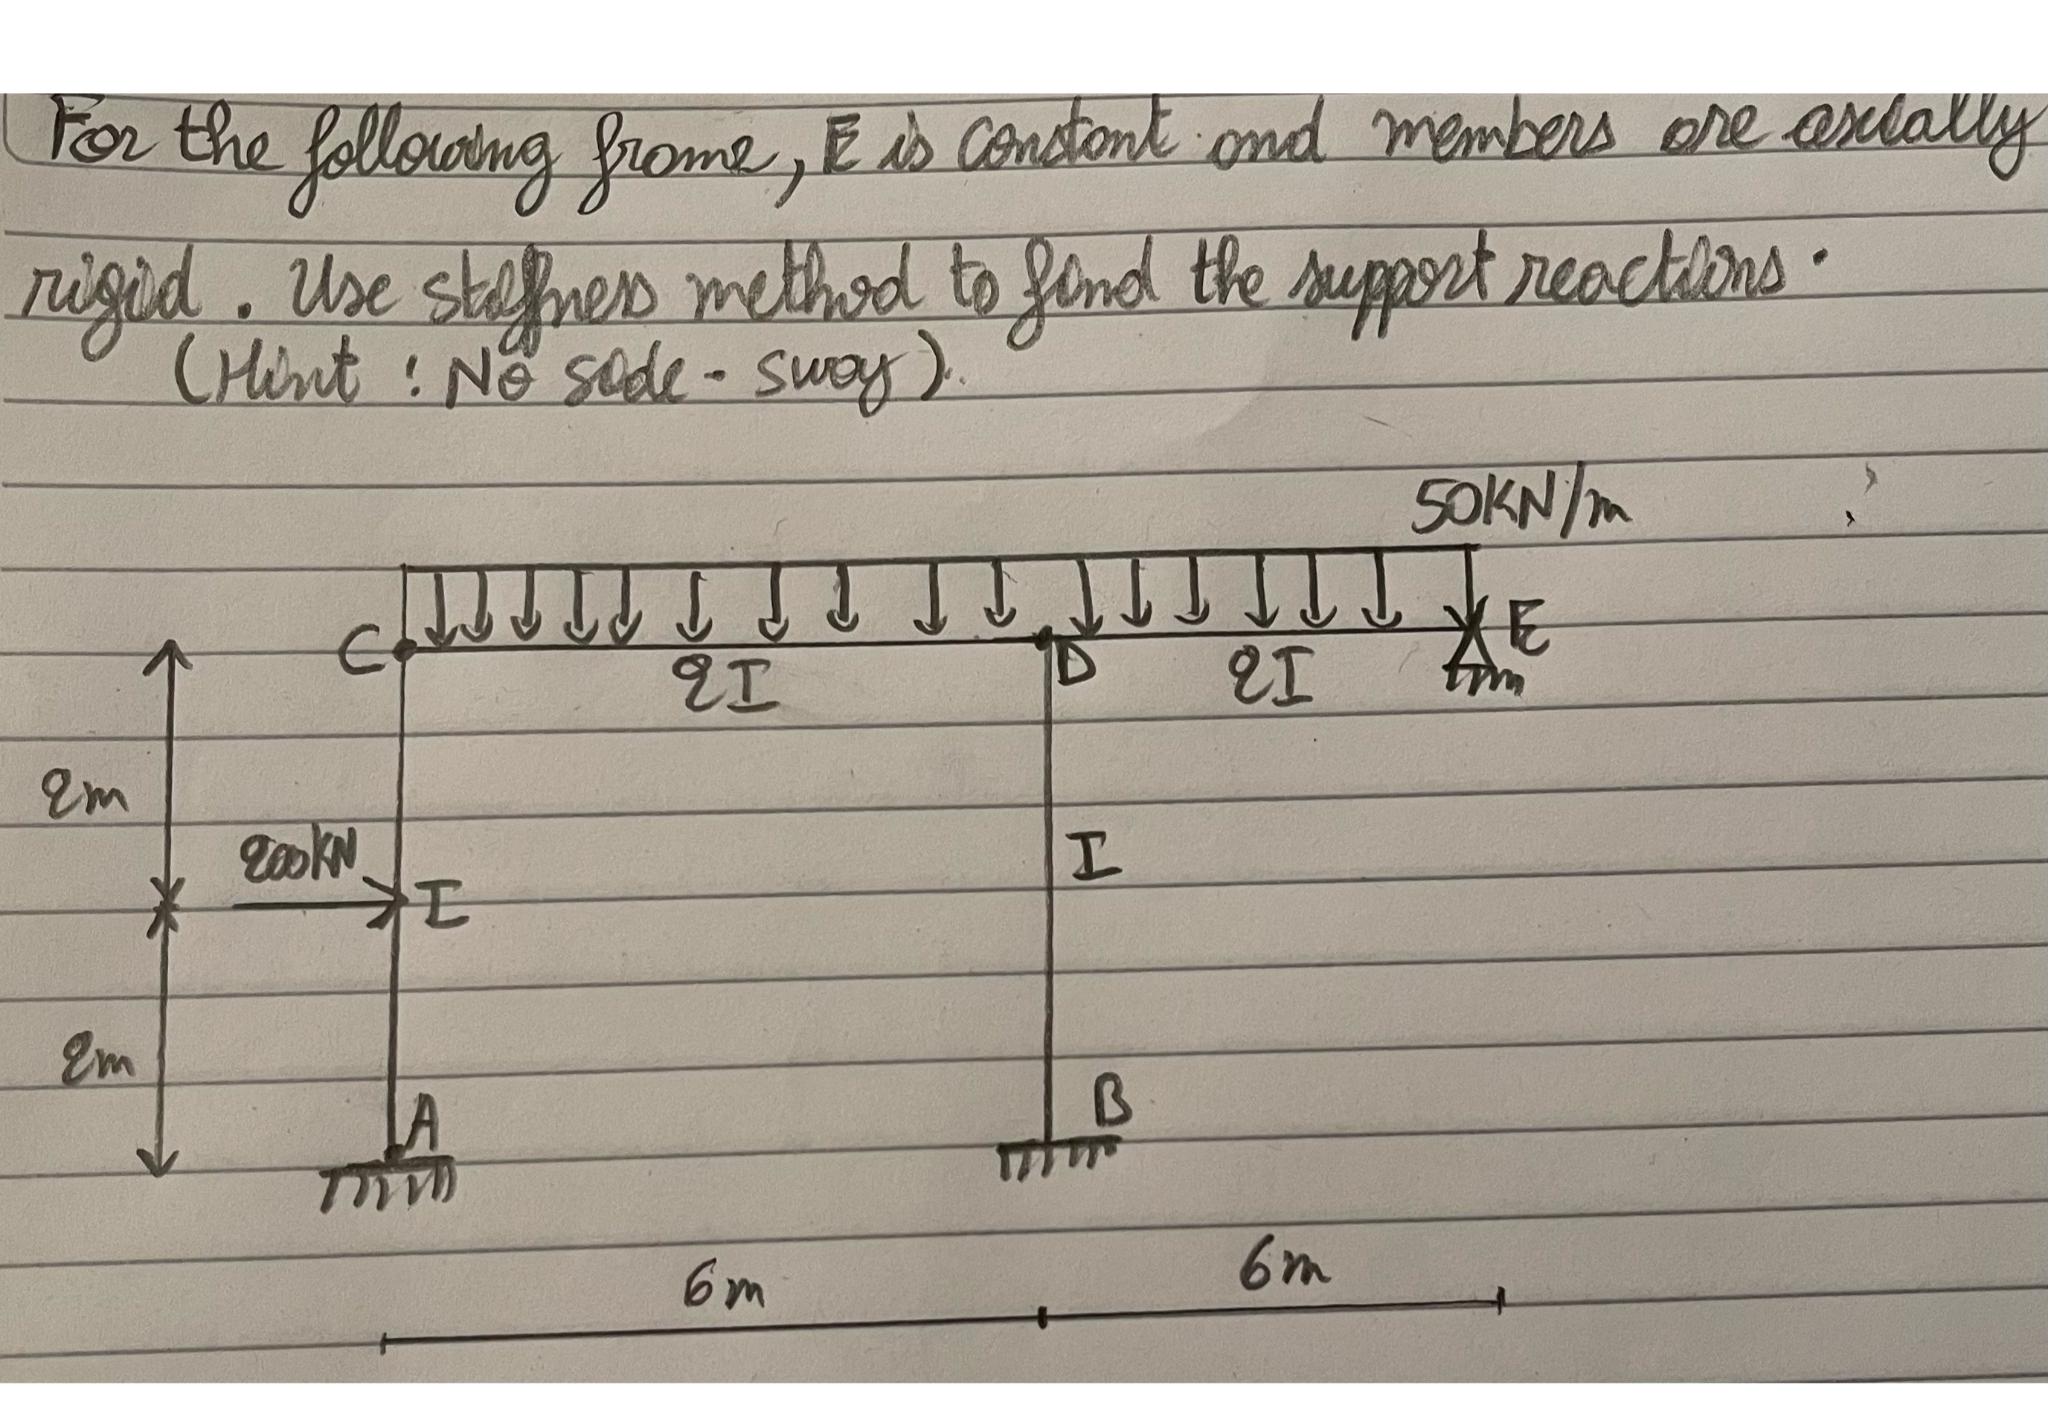 For the following frame, E is constant and members are axially
rigid. Use stiffness method to find the support reactions.
(Hint : No side-sway).
50KN/m
C
D
E
2I
2I
2m
200KN
I
I
2m
A
B
6m
6m